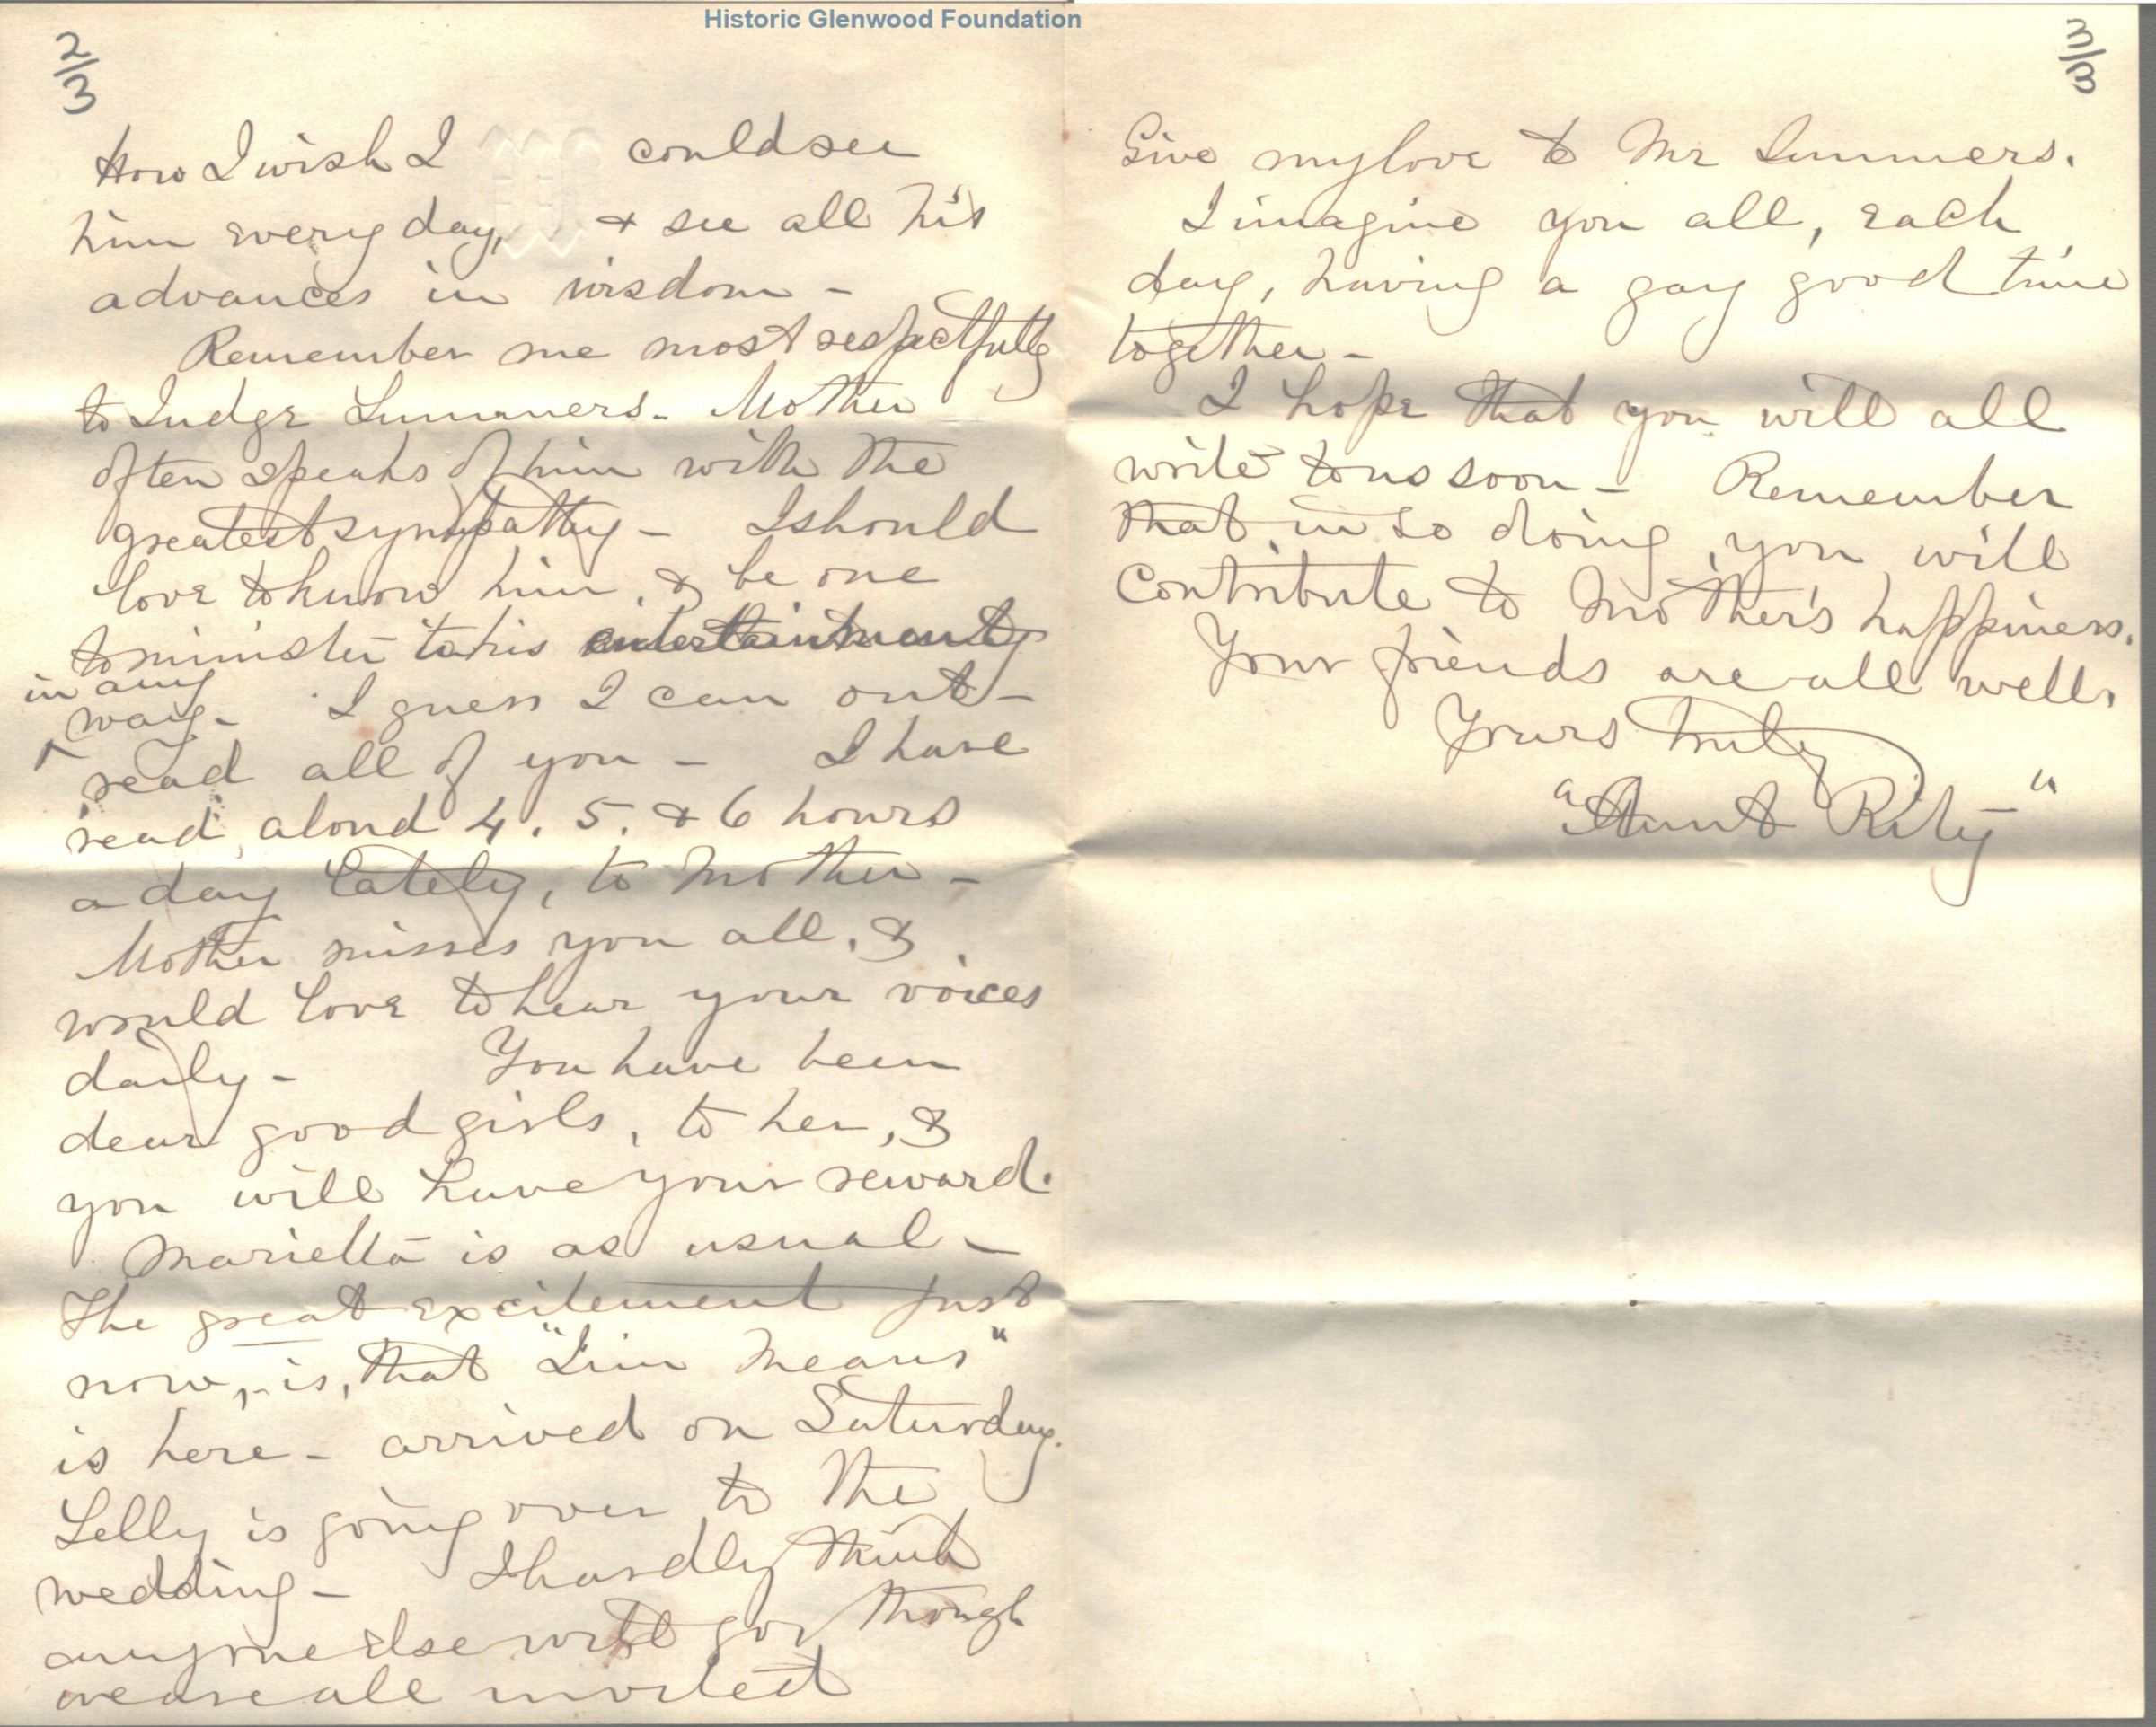 Historic Glenwood Foundation
2/3
How I wish I could see
him every day, & see all his
advances in wisdom -
Remember me most respectfully
to Judge Summers - Mother
often speaks of him with the
greatest sympathy - I should
love to know him, & be one
to minister to his entertainment
in any
way - I guess I can out-
read all of you - I have
read aloud 4. 5. & 6 hours
a day lately, to Mother -
Mother misses you all, &
would love to hear your voices
daily - You have been
dear good girls, to her, &
you will have your reward.
Marietta is as usual -
The great excitement just
now, is, that "Jim Means"
is here - arrived on Saturday.
Lelly is going over to the
wedding - I hardly think
anyone else will go, though
we are all invited
3/3
Give my love to Mr Summers.
I imagine you all, each
day, having a gay good time
together -
I hope that you will all
write to us soon - Remember
that in so doing, you will
contribute to Mother's happiness.
Your friends are all well.
Yours truly
"Aunt Rity"